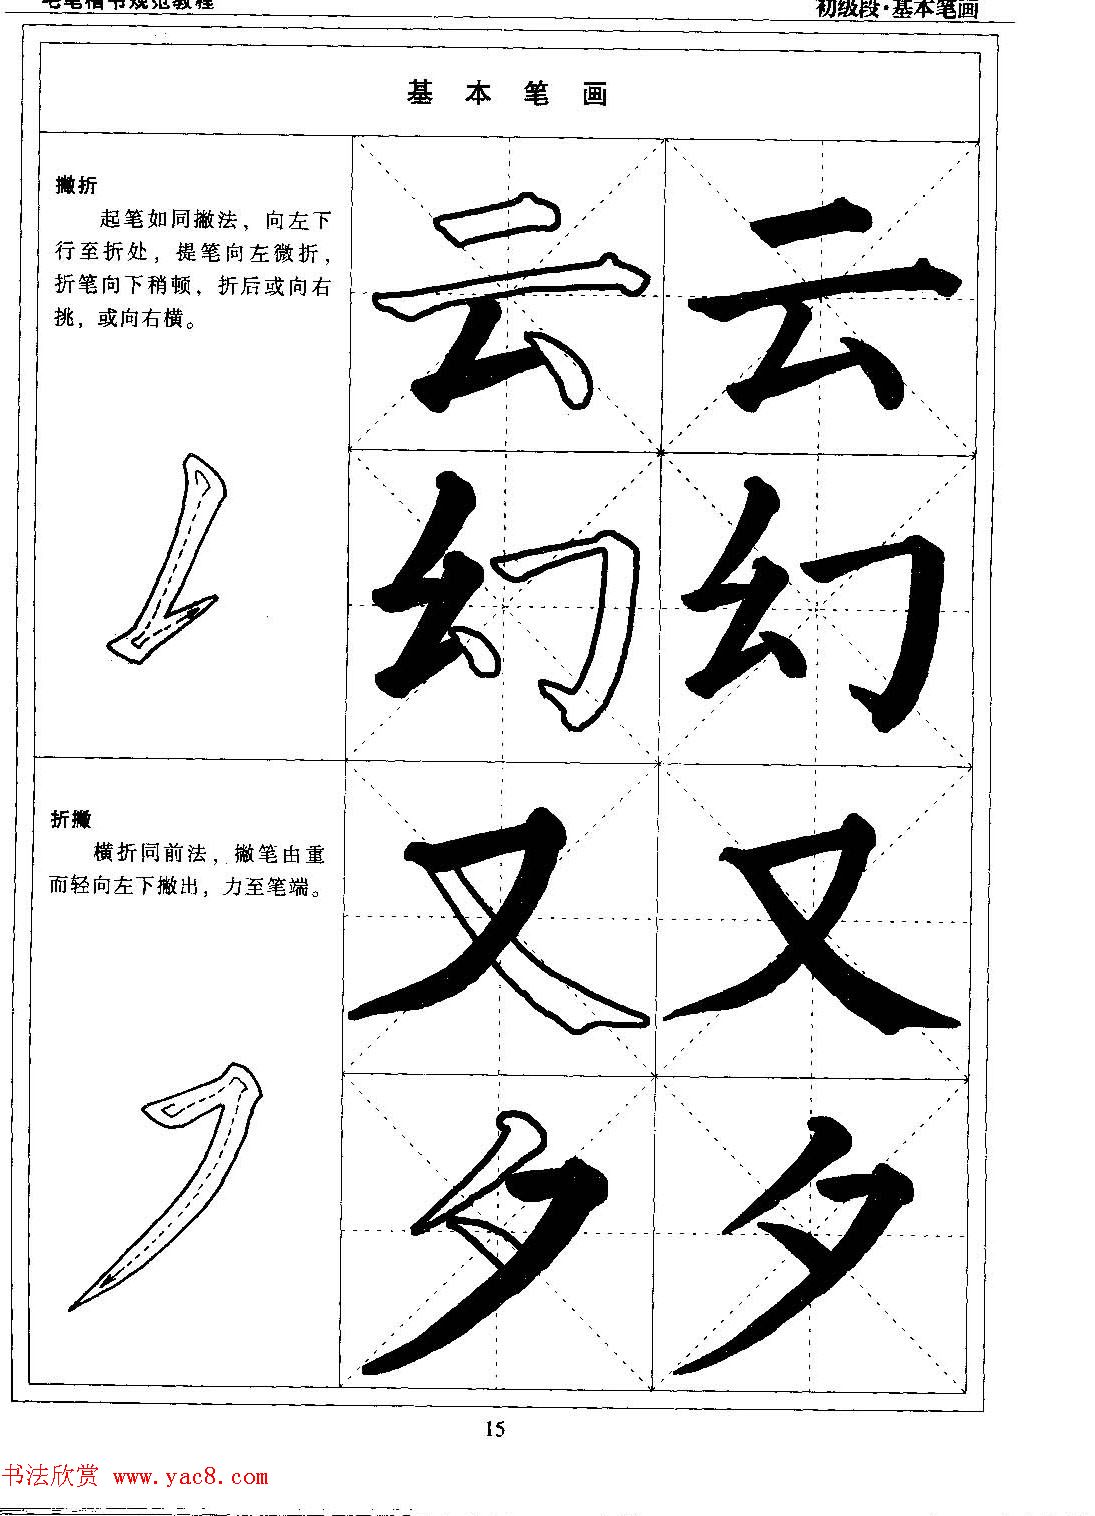 毛笔楷书规范教程
初级段·基本笔画
基本笔画
撇折
起笔如同撇法，向左下
行至折处，提笔向左微折，
折笔向下稍顿，折后或向右
挑，或向右横。
云 云
幻 幻
折撇
横折同前法，撇笔由重
而轻向左下撇出，力至笔端。
又 又
夕 夕
15
书法欣赏 www.yac8.com